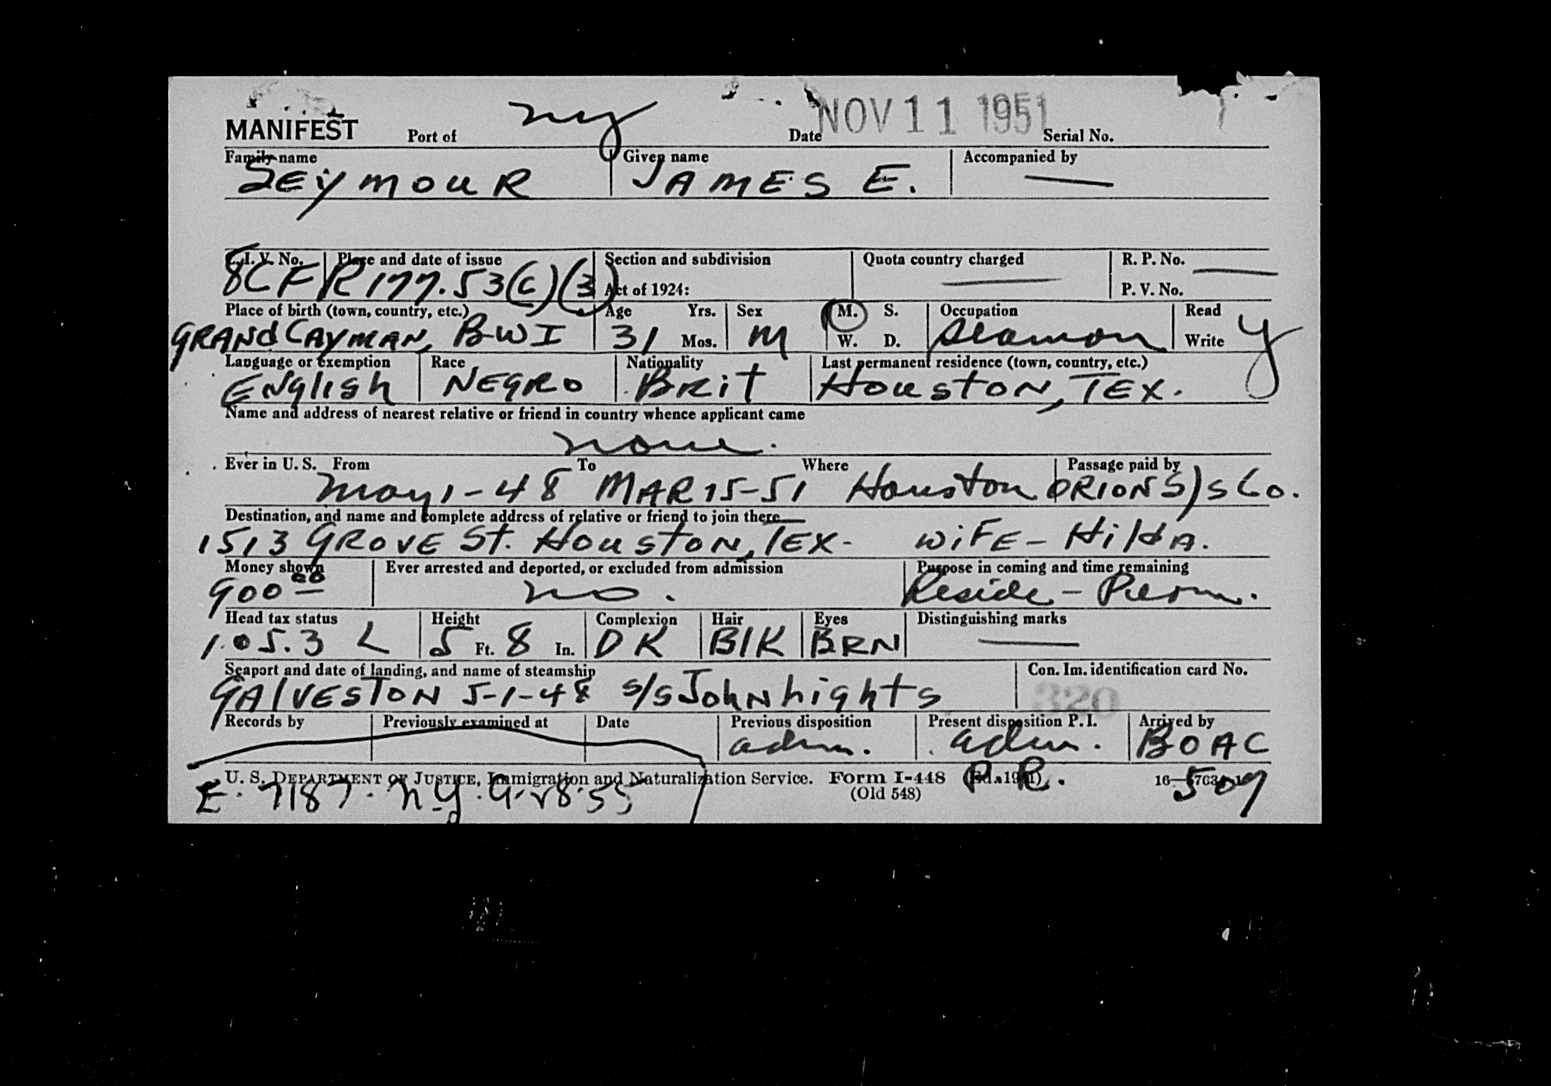 MANIFEST Port of NY Date NOV 11 1951 Serial No.
Family name Given name Accompanied by
SEYMOUR JAMES E. —
I. V. No. Place and date of issue Section and subdivision Quota country charged R. P. No. —
8CFR 177.53(C)(3) Act of 1924: — P. V. No.
Place of birth (town, country, etc.) Age Yrs. Sex M. S. Occupation Read
GRAND CAYMAN, BWI 31 Mos. M W. D. Seaman Write Y
Language or exemption Race Nationality Last permanent residence (town, country, etc.)
ENglish NEGRO BRit HOUSTON, TEX.
Name and address of nearest relative or friend in country whence applicant came
none.
Ever in U. S. From To Where Passage paid by
May 1-48 MAR 15-51 Houston ORION S/S Co.
Destination, and name and complete address of relative or friend to join there
1513 GROVE St. HOUSTON, TEX- WiFE - HilDA.
Money shown Ever arrested and deported, or excluded from admission Purpose in coming and time remaining
900 00 no. Reside - Perm.
Head tax status Height Complexion Hair Eyes Distinguishing marks
1.05.3 L 5 Ft. 8 In. DK BlK BRN —
Seaport and date of landing, and name of steamship Con. Im. identification card No.
GAlVESTON 5-1-48 S/S John 320
Records by Previously examined at Date Previous disposition Present disposition P. I. Arrived by
adm. adm. BOAC
U. S. DEPARTMENT OF JUSTICE, Immigration and Naturalization Service. FORM I-448 P.R. 507
(Old 548)
E. 7187. N.Y.